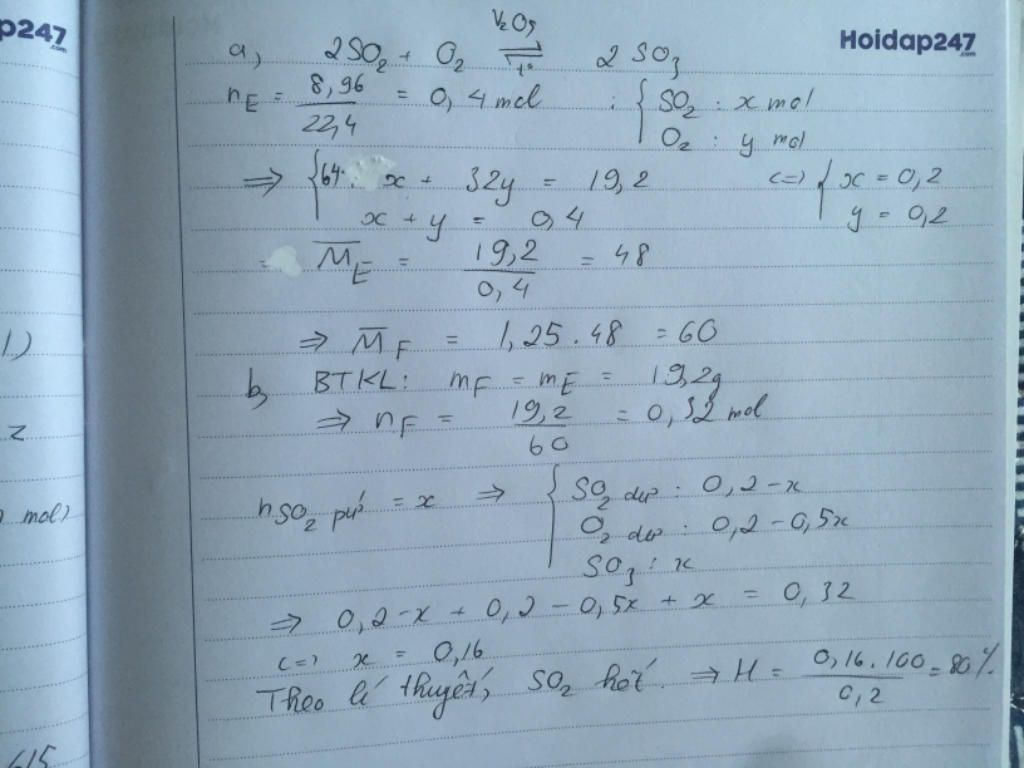 p247
.com
Hoidap247
.com
a, 2SO₂ + O₂ ⇌ 2SO₃
V₂O₅
t°
n_E = 8,96 / 22,4 = 0,4 mol : { SO₂ : x mol
O₂ : y mol
=> { 64. x + 32y = 19,2 <=> { x = 0,2
x + y = 0,4 y = 0,2
= M̅_E = 19,2 / 0,4 = 48
=> M̅_F = 1,25 . 48 = 60
b, BTKL: m_F = m_E = 19,2g
=> n_F = 19,2 / 60 = 0,32 mol
n_SO₂ pứ = x => { SO₂ dư : 0,2 - x
O₂ dư : 0,2 - 0,5x
SO₃ : x
=> 0,2 - x + 0,2 - 0,5x + x = 0,32
<=> x = 0,16
Theo lí thuyết, SO₂ hết. => H = 0,16.100 / 0,2 = 80%
1)
z
mol)
615